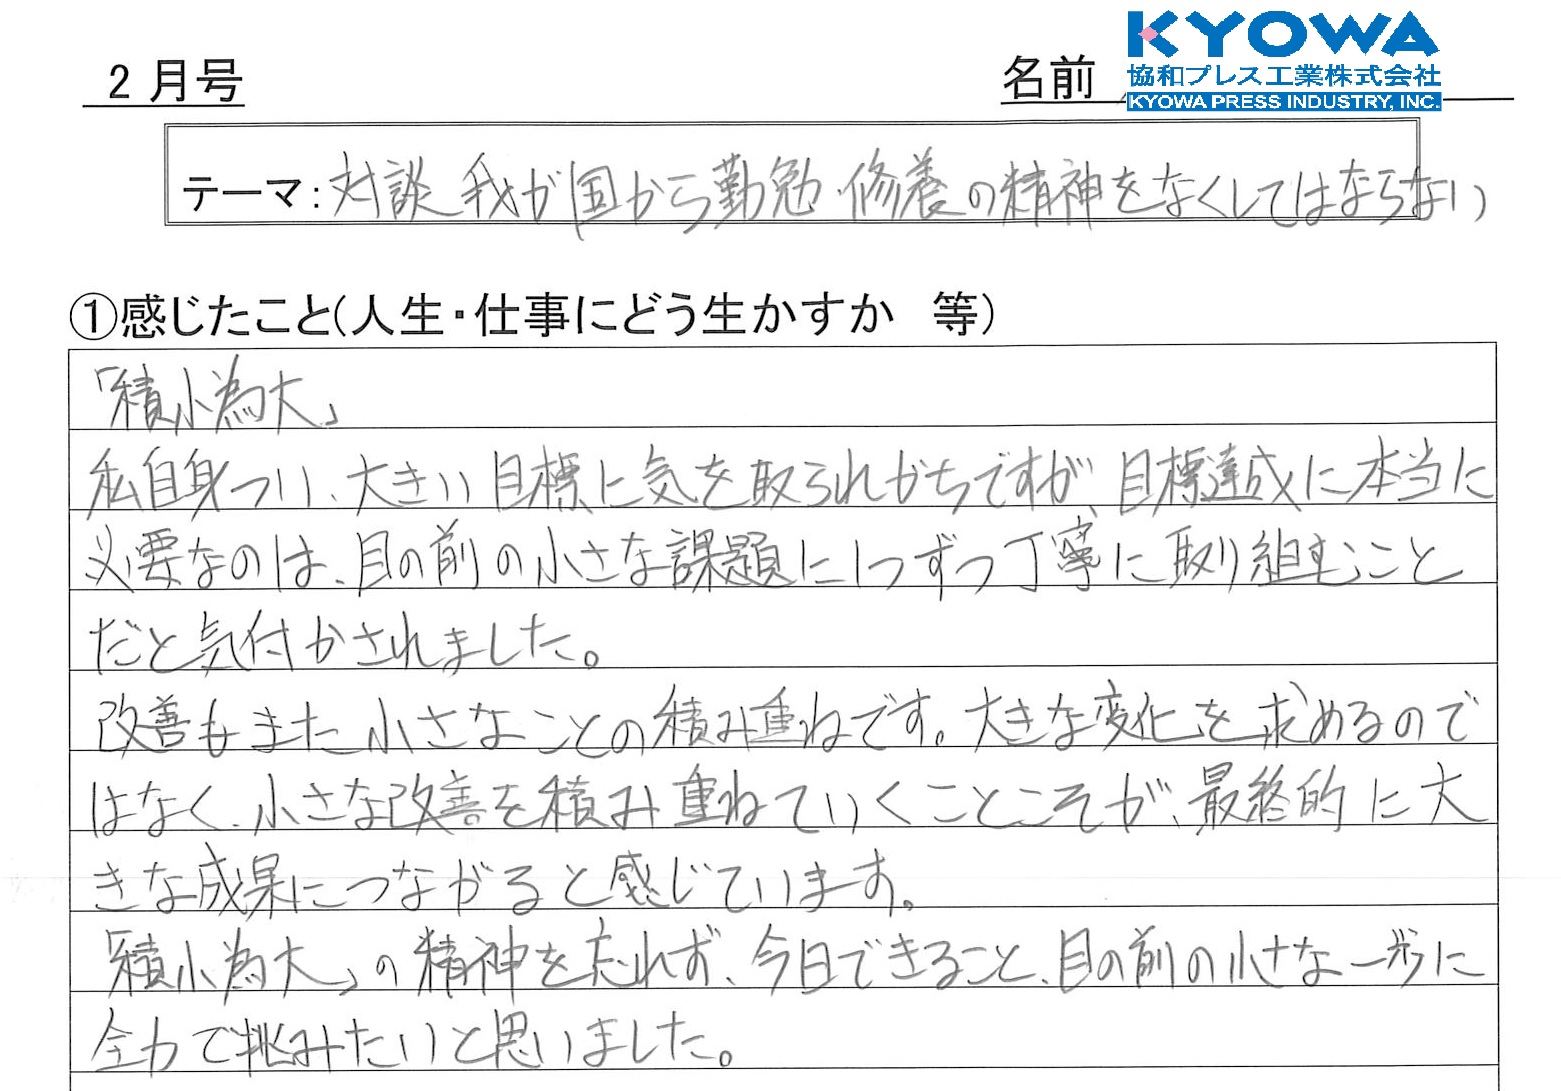 2月号
名前
KYOWA
協和プレス工業株式会社
KYOWA PRESS INDUSTRY, INC.
テーマ: 対談 我が国から勤勉・修養の精神をなくしてはならない
①感じたこと(人生・仕事にどう生かすか 等)
「積小為大」
私自身つい、大きい目標に気を取られがちですが、目標達成に本当に
必要なのは、目の前の小さな課題に1つずつ丁寧に取り組むこと
だと気付かされました。
改善もまた小さなことの積み重ねです。大きな変化を求めるので
はなく、小さな改善を積み重ねていくことこそが、最終的に大
きな成果につながると感じています。
「積小為大」の精神を忘れず、今日できること、目の前の小さな一歩に
全力で挑みたいと思いました。